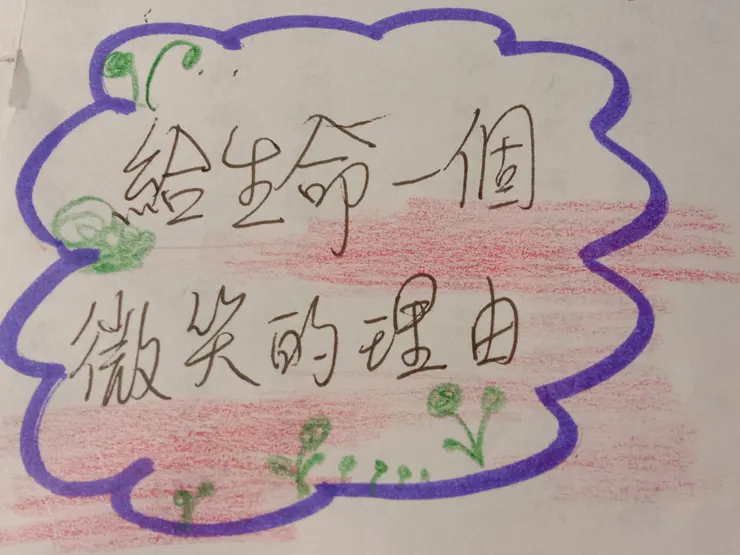 給生命一個
微笑的理由